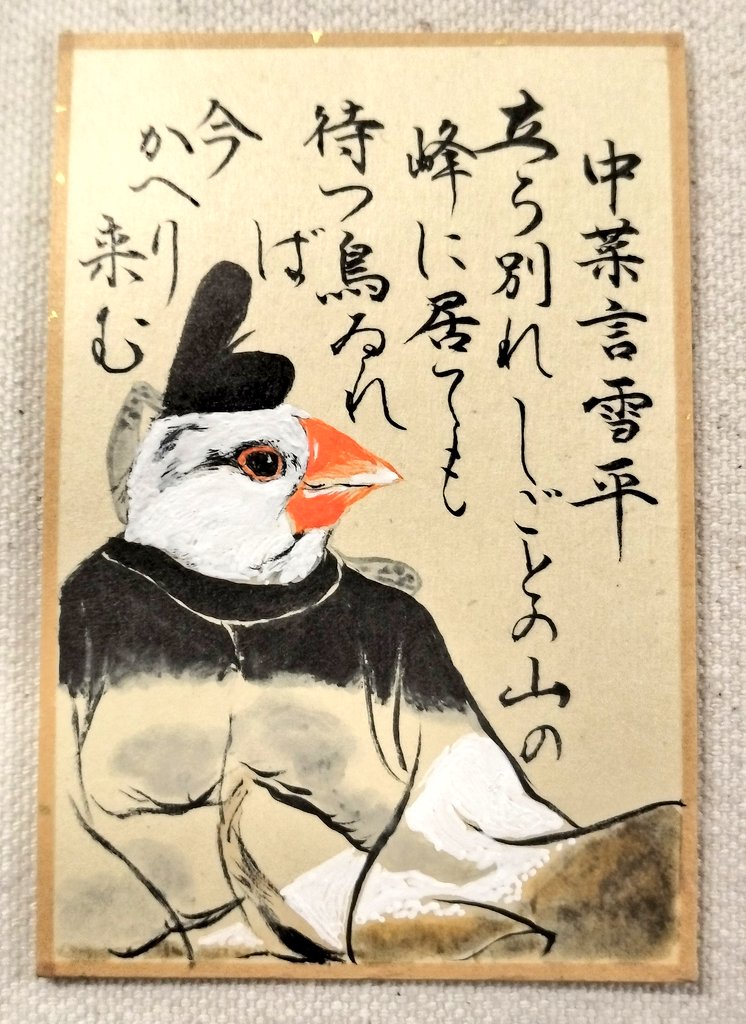 中菜言雪平
立ち別れしごとの山の
峰に居ても
待つ鳥ゐれ
ば
今
かへり
来む